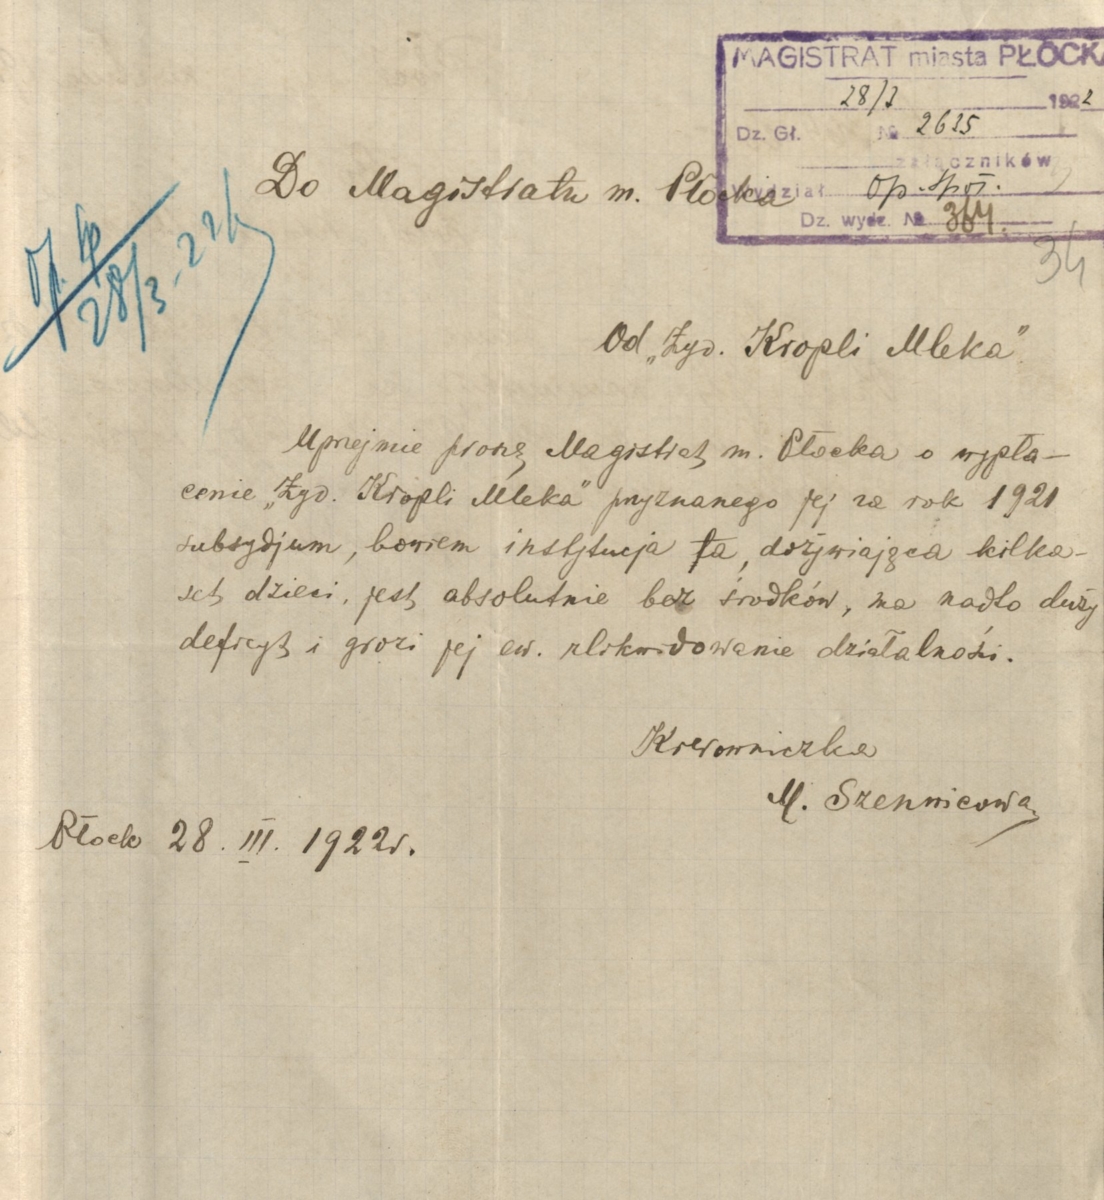 MAGISTRAT miasta PŁOCKA
28/3 1922
Dz. Gł. № 2635
załączników
Wydział Op. Społ.
Dz. wydz. № 364.
34
Op. Sp
28/3 - 22
Do Magistratu m. Płocka
Od „Żyd. Kropli Mleka”
Uprzejmie proszę Magistrat m. Płocka o wypła-
cenie „Żyd. Kropli Mleka” przyznanego jej za rok 1921
subsydjum, bowiem instytucja ta, dożywiająca kilka-
set dzieci, jest absolutnie bez środków, ma nadto duży
deficyt i grozi jej ew. zlikwidowanie działalności.
Kierowniczka
M. Szenwicowa
Płock 28. III. 1922 r.